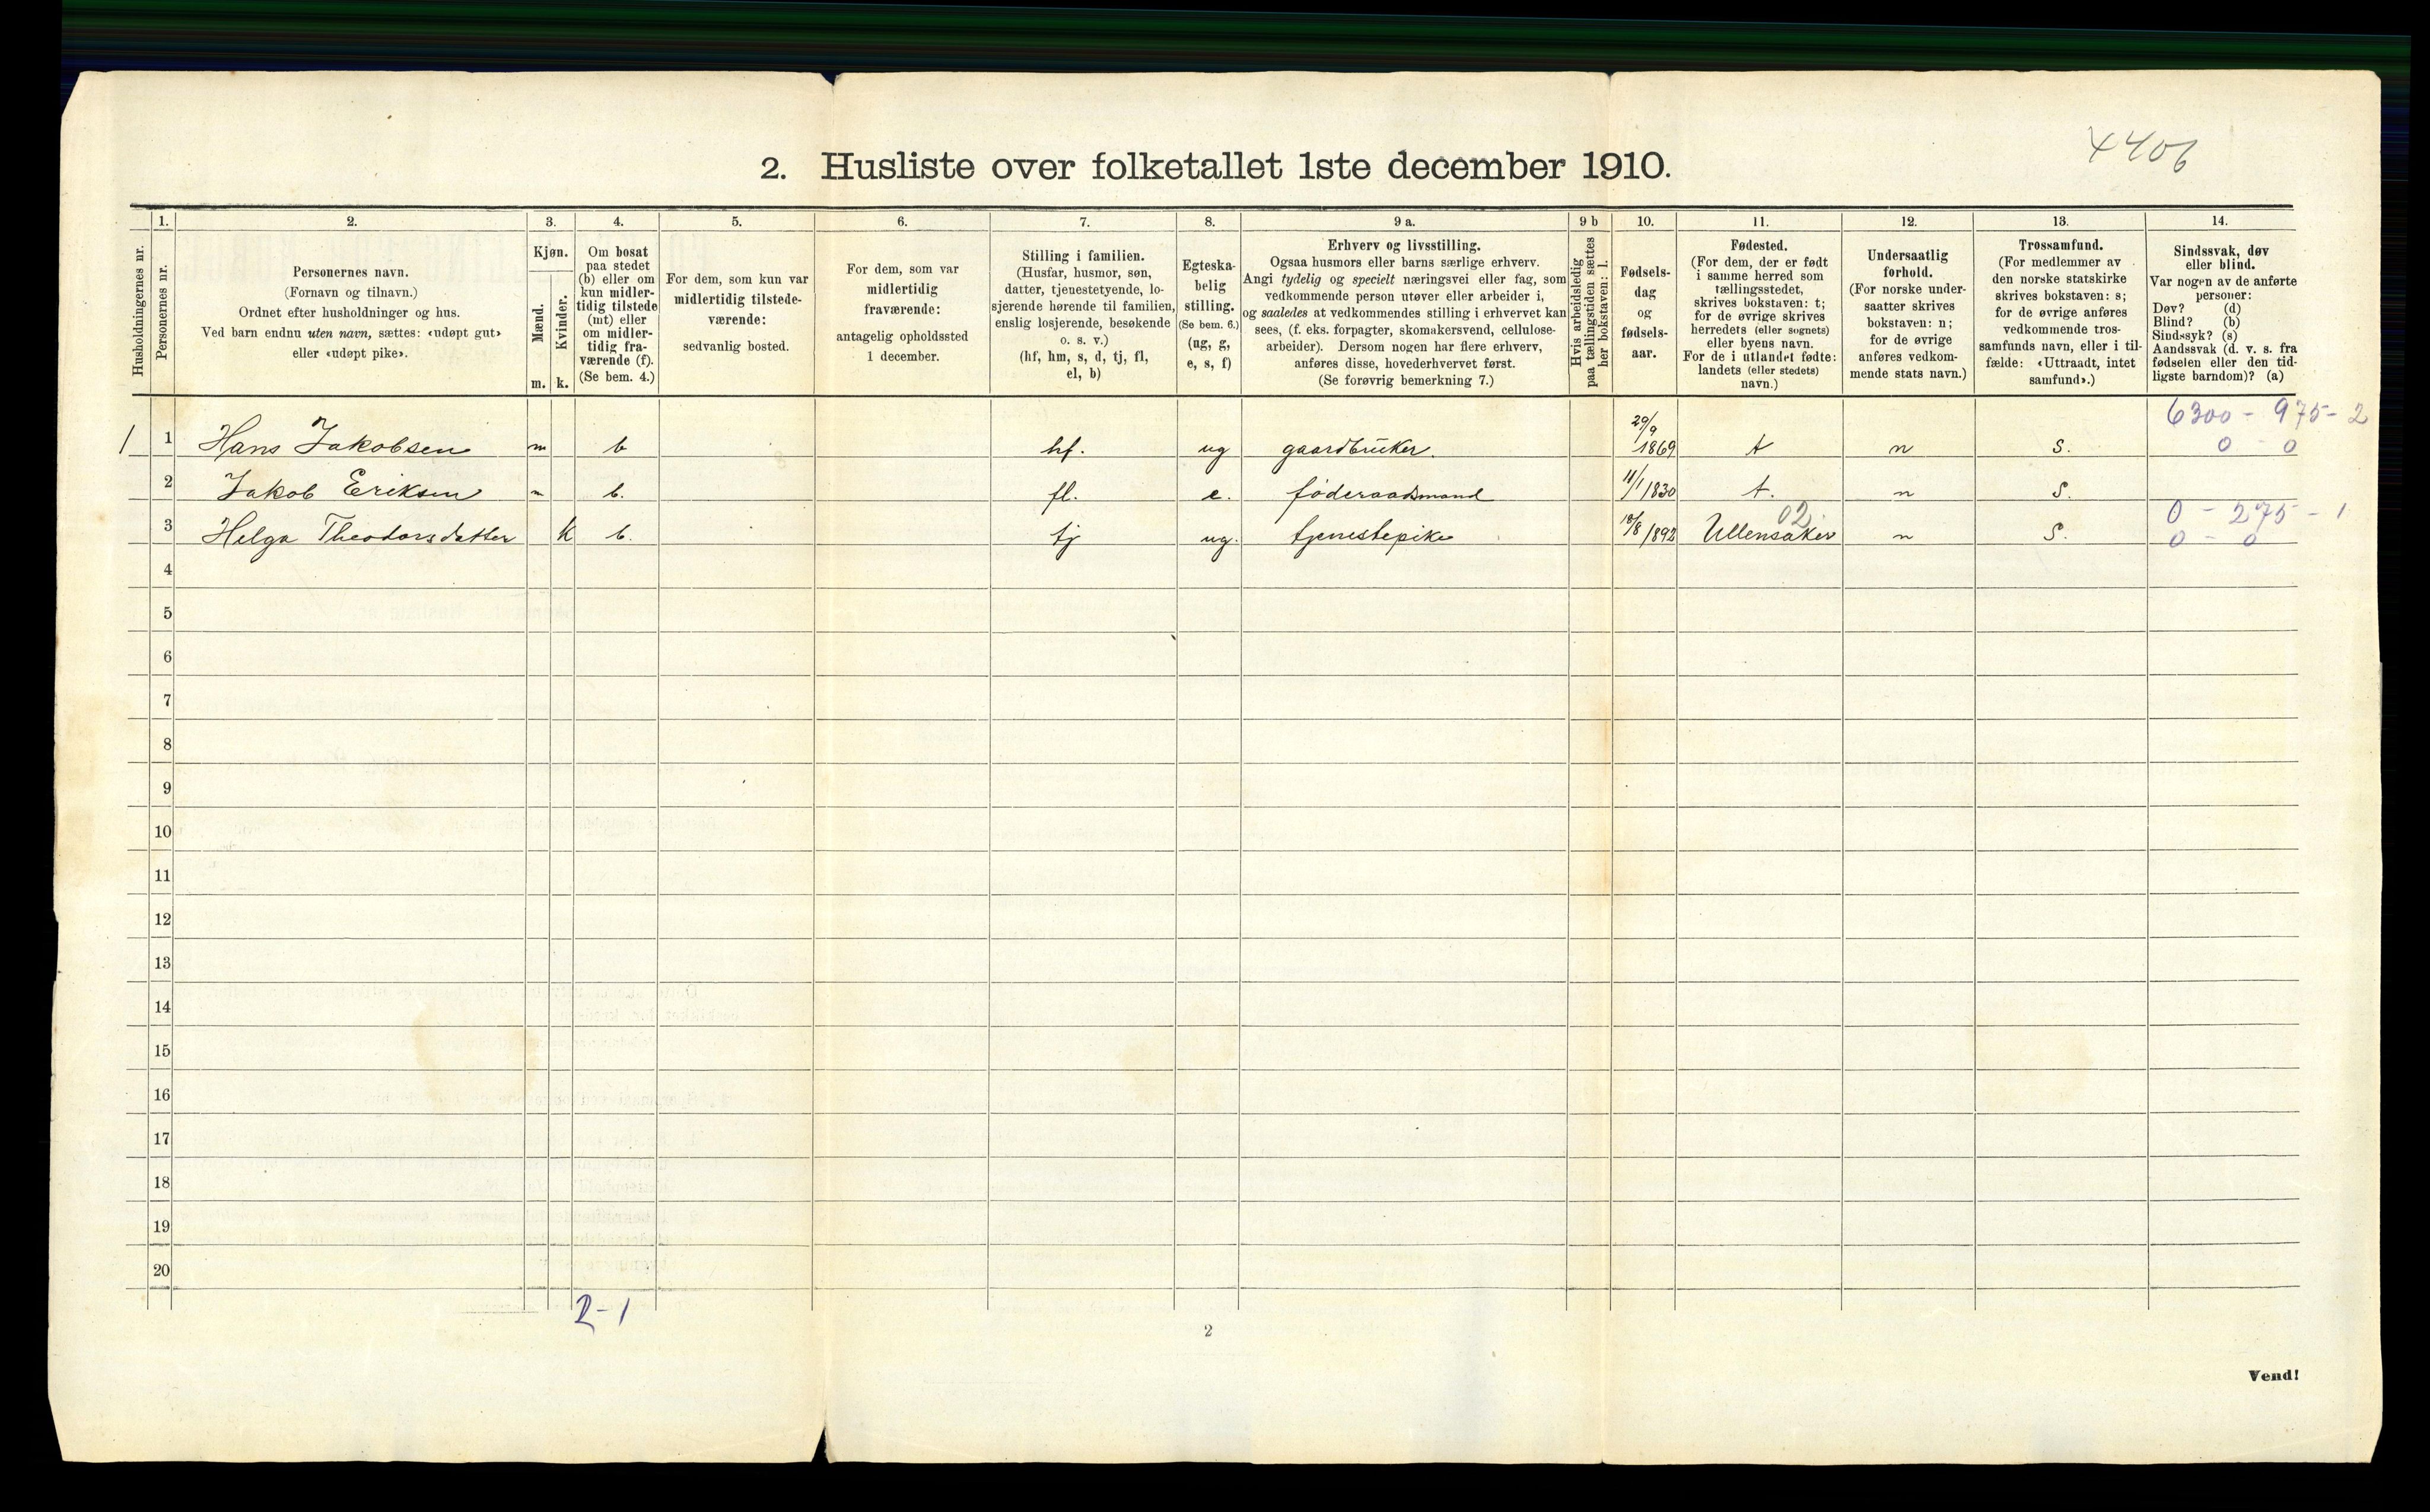 4406
2. Husliste over folketallet 1ste december 1910.
Husholdningernes nr.
1.
Personernes nr.
2.
Personernes navn.
(Fornavn og tilnavn.)
Ordnet efter husholdninger og hus.
Ved barn endnu uten navn, sættes: «udøpt gut»
eller «udøpt pike».
3.
Kjøn.
Mænd.
m.
Kvinder.
k.
4.
Om bosat
paa stedet
(b) eller om
kun midler-
tidig tilstede
(mt) eller
om midler-
tidig fra-
værende (f).
(Se bem. 4.)
5.
For dem, som kun var
midlertidig tilstede-
værende:
sedvanlig bosted.
6.
For dem, som var
midlertidig
fraværende:
antagelig opholdssted
1 december.
7.
Stilling i familien.
(Husfar, husmor, søn,
datter, tjenestetyende, lo-
sjerende hørende til familien,
enslig losjerende, besøkende
o. s. v.)
(hf, hm, s, d, tj, fl,
el, b)
8.
Egteska-
belig
stilling.
(Se bem. 6.)
(ug, g,
e, s, f)
9 a.
Erhverv og livsstilling.
Ogsaa husmors eller barns særlige erhverv.
Angi tydelig og specielt næringsvei eller fag, som
vedkommende person utøver eller arbeider i,
og saaledes at vedkommendes stilling i erhvervet kan
sees, (f. eks. forpagter, skomakersvend, cellulose-
arbeider). Dersom nogen har flere erhverv,
anføres disse, hovederhvervet først.
(Se forøvrig bemerkning 7.)
9 b
Hvis arbeidsledig
paa tællingstiden sættes
her bokstaven: l.
10.
Fødsels-
dag
og
fødsels-
aar.
11.
Fødested.
(For dem, der er født
i samme herred som
tællingsstedet,
skrives bokstaven: t;
for de øvrige skrives
herredets (eller sognets)
eller byens navn.
For de i utlandet fødte:
landets (eller stedets)
navn.)
12.
Undersaatlig
forhold.
(For norske under-
saatter skrives
bokstaven: n;
for de øvrige
anføres vedkom-
mende stats navn.)
13.
Trossamfund.
(For medlemmer av
den norske statskirke
skrives bokstaven: s;
for de øvrige anføres
vedkommende tros-
samfunds navn, eller i til-
fælde: «Uttraadt, intet
samfund».)
14.
Sindssvak, døv
eller blind.
Var nogen av de anførte
personer:
Døv? (d)
Blind? (b)
Sindssyk? (s)
Aandssvak (d. v. s. fra
fødselen eller den tid-
ligste barndom)? (a)
6300 - 975 - 2
1 1 Hans Jakobsen m b hf. ug gaardbruker. 29/9 1869 t n s. 0 - 0
2 Jakob Eriksen m b. fl. e. føderaadsmand 11/1 1830 t. n S.
02 0 - 275 - 1
3 Helga Theodorsdatter k b. tj ug. tjenestepike 18/8 1892 Ullensaker n S. 0 - 0
4
5
6
7
8
9
10
11
12
13
14
15
16
17
18
19
20
2-1
2
Vend!